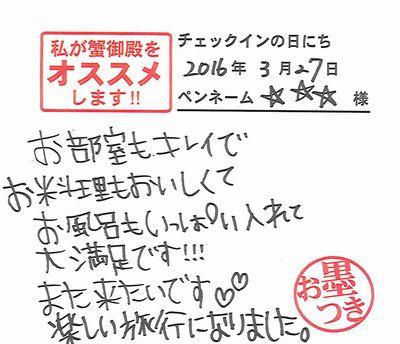 私が蟹御殿を
オススメ
します!!
チェックインの日にち
2016年 3月27日
ペンネーム ☆☆☆ 様
お部屋もキレイで
お料理もおいしくて
お風呂もいっぱい入れて
大満足です!!!
また来たいです♡♡
楽しい旅行になりました。
お墨つき